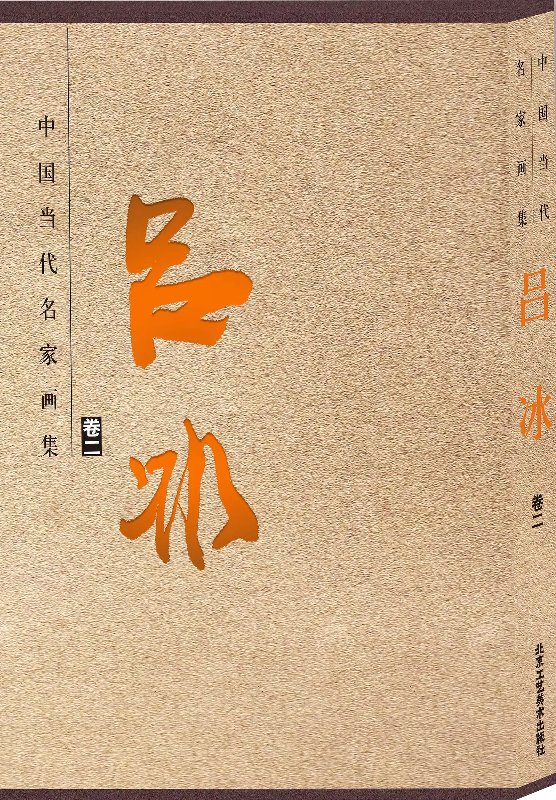 中国当代名家画集
卷二
吕冰
中国当代
名家画集
吕冰
卷二
北京工艺美术出版社